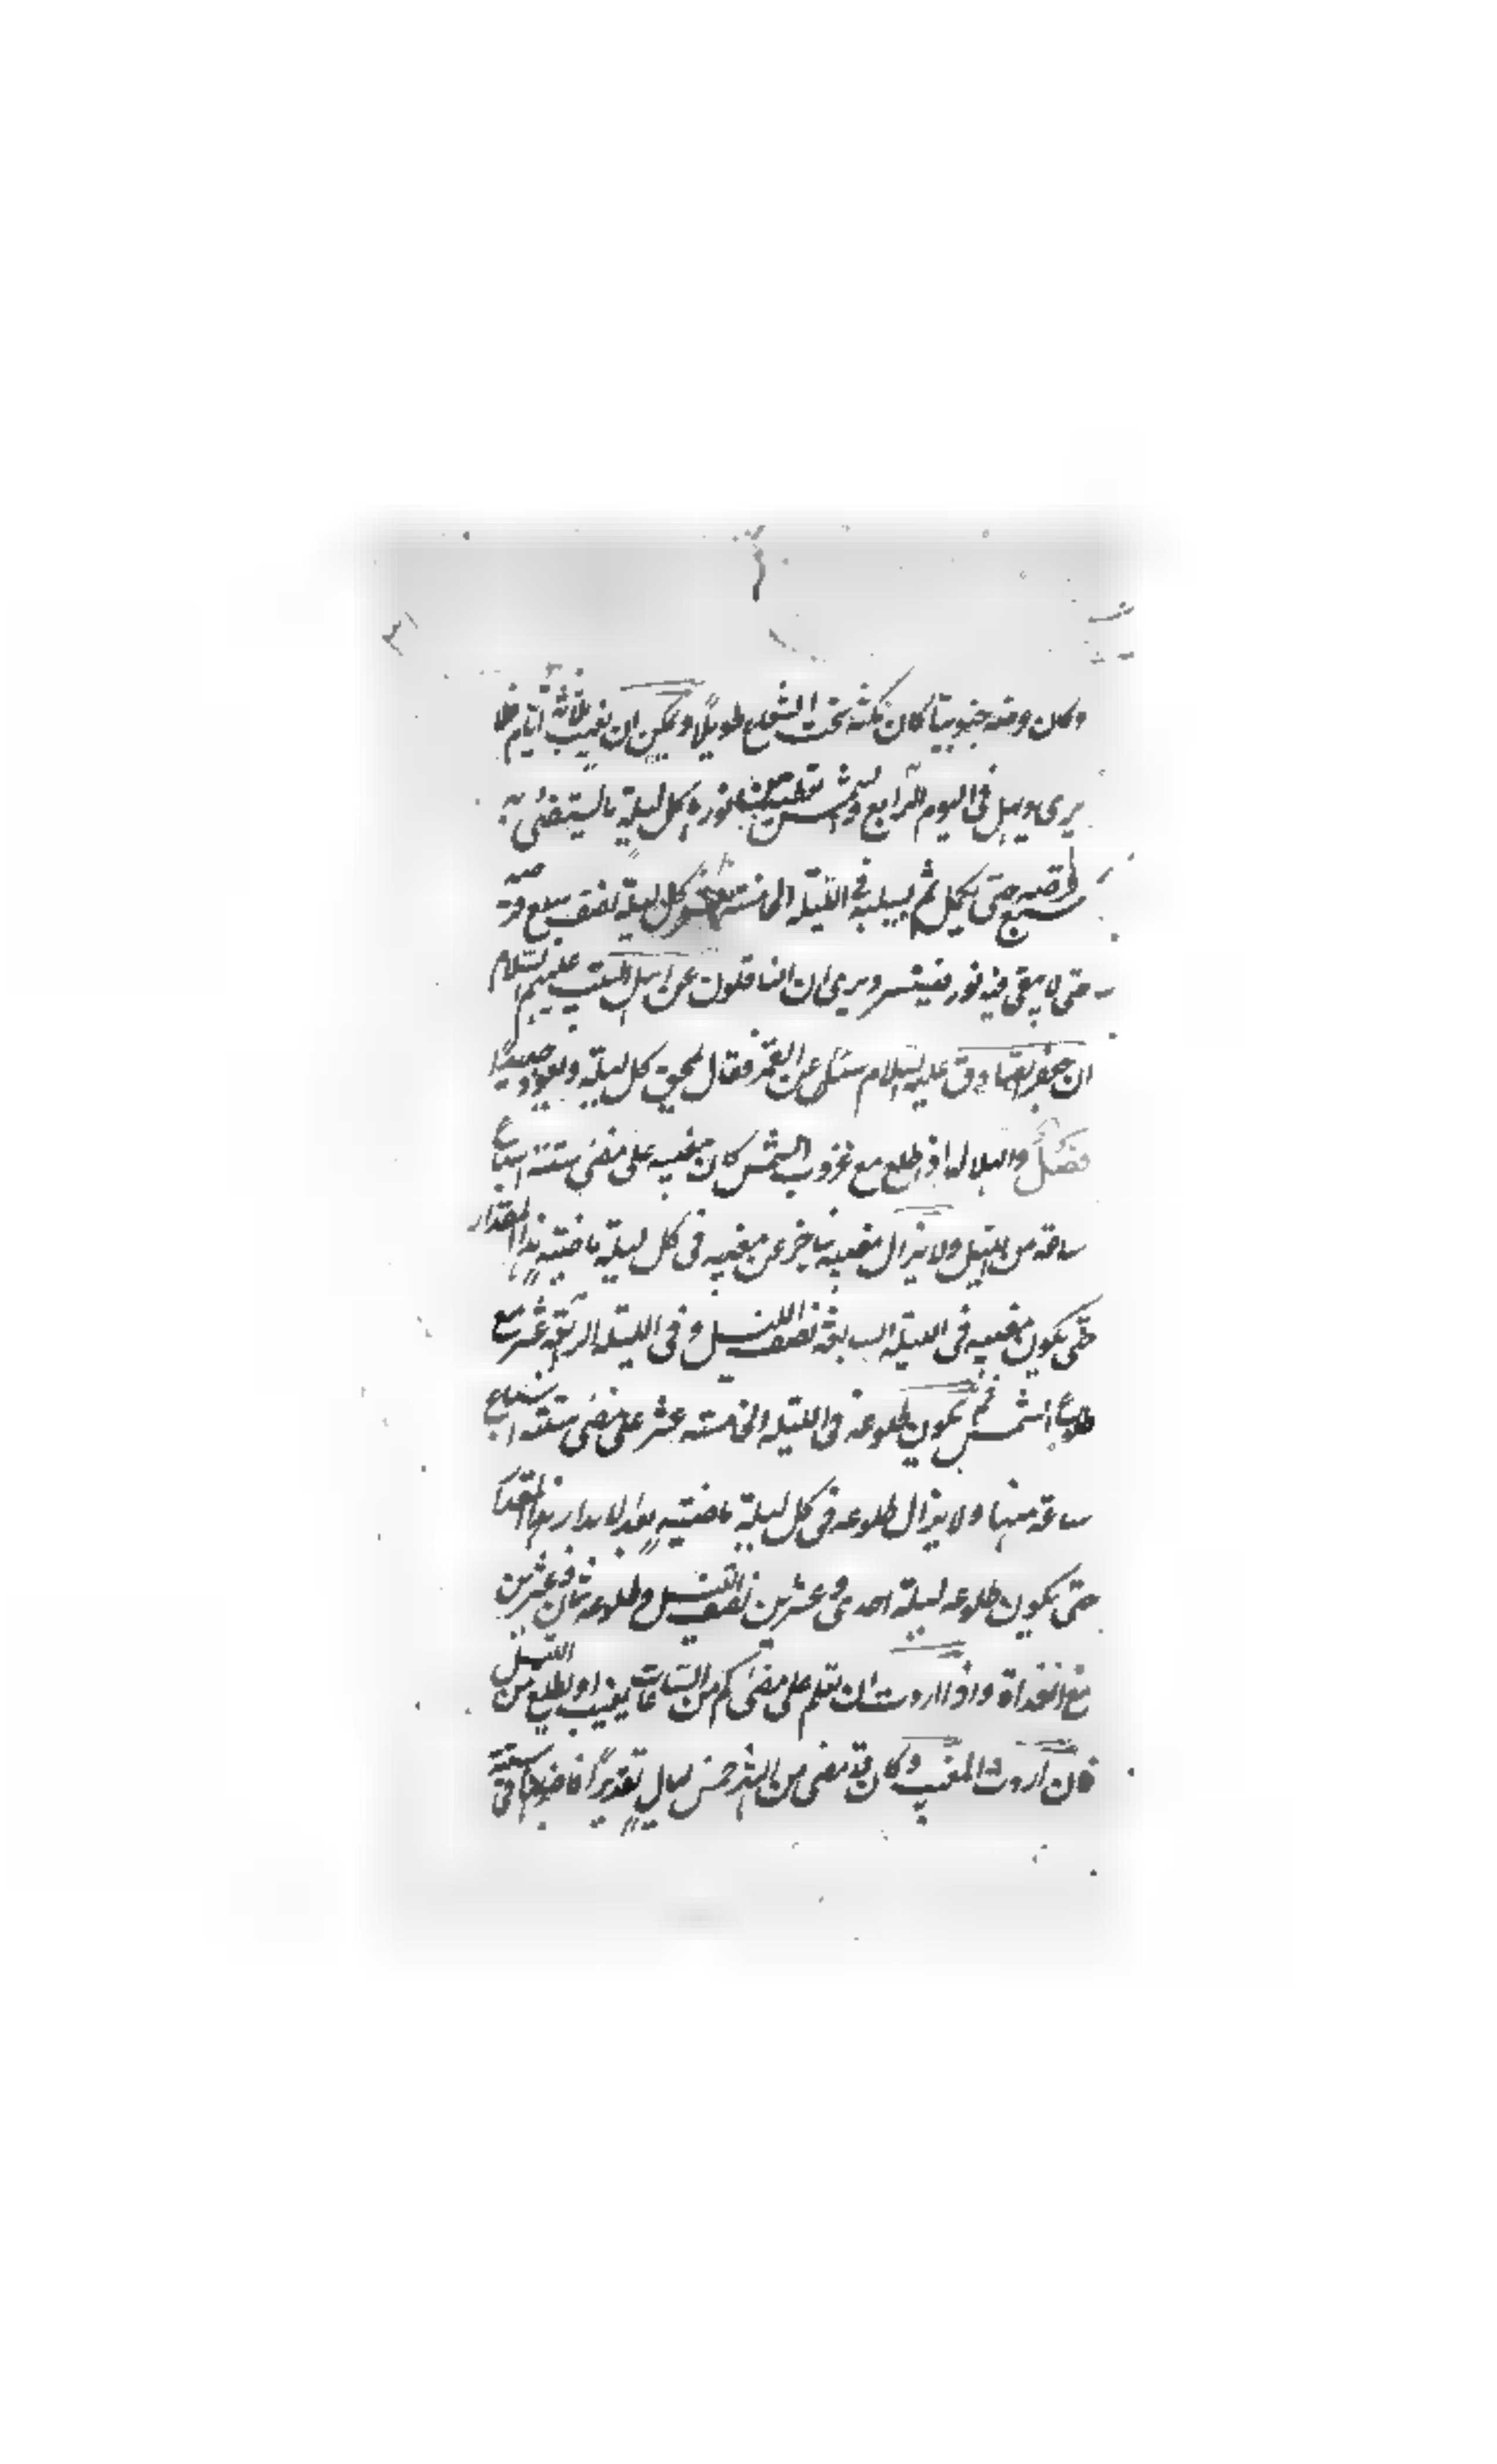 وكان عرضه جنوبيا كان مكثه تحت الشعاع طويلا ويمكن ان يغيب ثلاثة ايام فلا
يرى ويهل في اليوم الرابع والشمس تعطيه من نورها كل ليلة ما يستضئ به
نصف سبع قرصه حتى يكمل ثم يسلبه في الليلة الخامسة عشر كل ليلة نصف سبع قرصه
حتى لا يبقى فيه نور فيستسر ويرى ان الناقلون عن اهل البيت عليهم السلام
ان جعفر الصادق عليه السلام سئل عن القمر فقال يمحق كل ليلة ويعود جديدا
فصل والهلال اذا طلع مع غروب الشمس كان مغيبه على مضى ستة اسباع
ساعة من الليل ولا يزال مغيبه يتاخر عن مغيبه في كل ليلة ماضية بهذا المقدار
حتى يكون مغيبه في الليلة السابعة نصف الليل وفي الليلة الرابعة عشر مع
طلوع الشمس ثم يكون طلوعه في الليلة الخامسة عشر على مضى ستة اسباع
ساعة منها ولا يزال طلوعه في كل ليلة ماضية بعد الابدار بهذا المقدار
حتى يكون طلوعه ليلة احدى وعشرين نصف الليل وطلوعه ثمان وعشرين
مع الغداة واذا اردت ان تعلم على مضى كم من الساعات يغيب او يطلع من الليل
فان اردت المغيب وكان قد مضى من الشهر خمس ليال تقديرا فاضربها في ستة